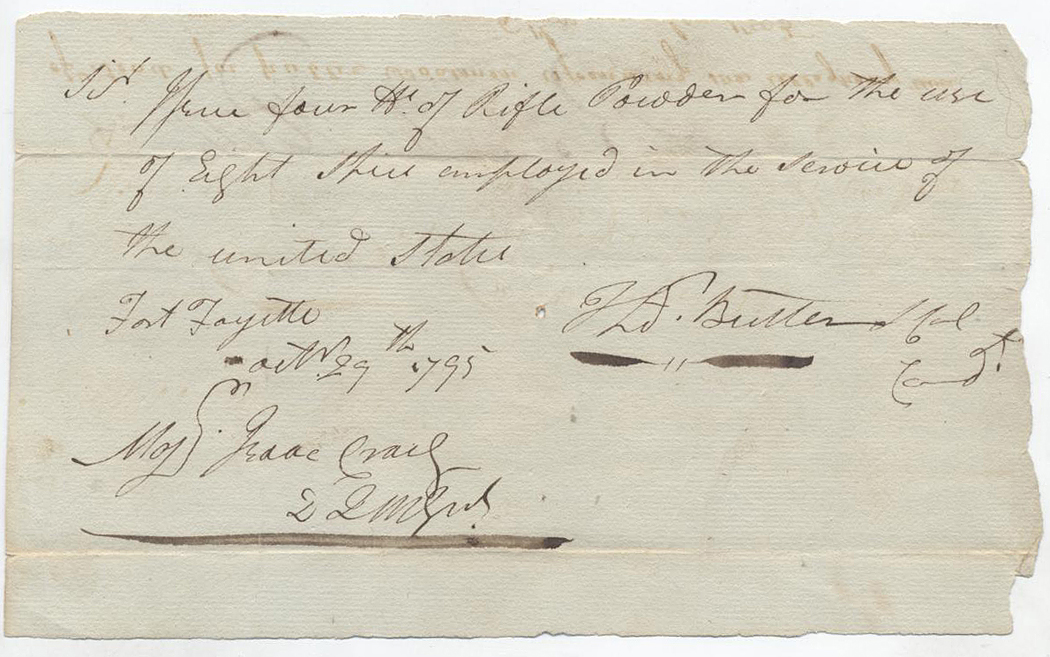 Sr. Issue four lbs. of Rifle Powder for the use
of Eight Spies employed in the Service of
the united States
Fort Fayette
octbr. 29th 1795
Thos. Butler Lt Col
Comdt.
Majr. Isaac Craig
D Q M Genl.